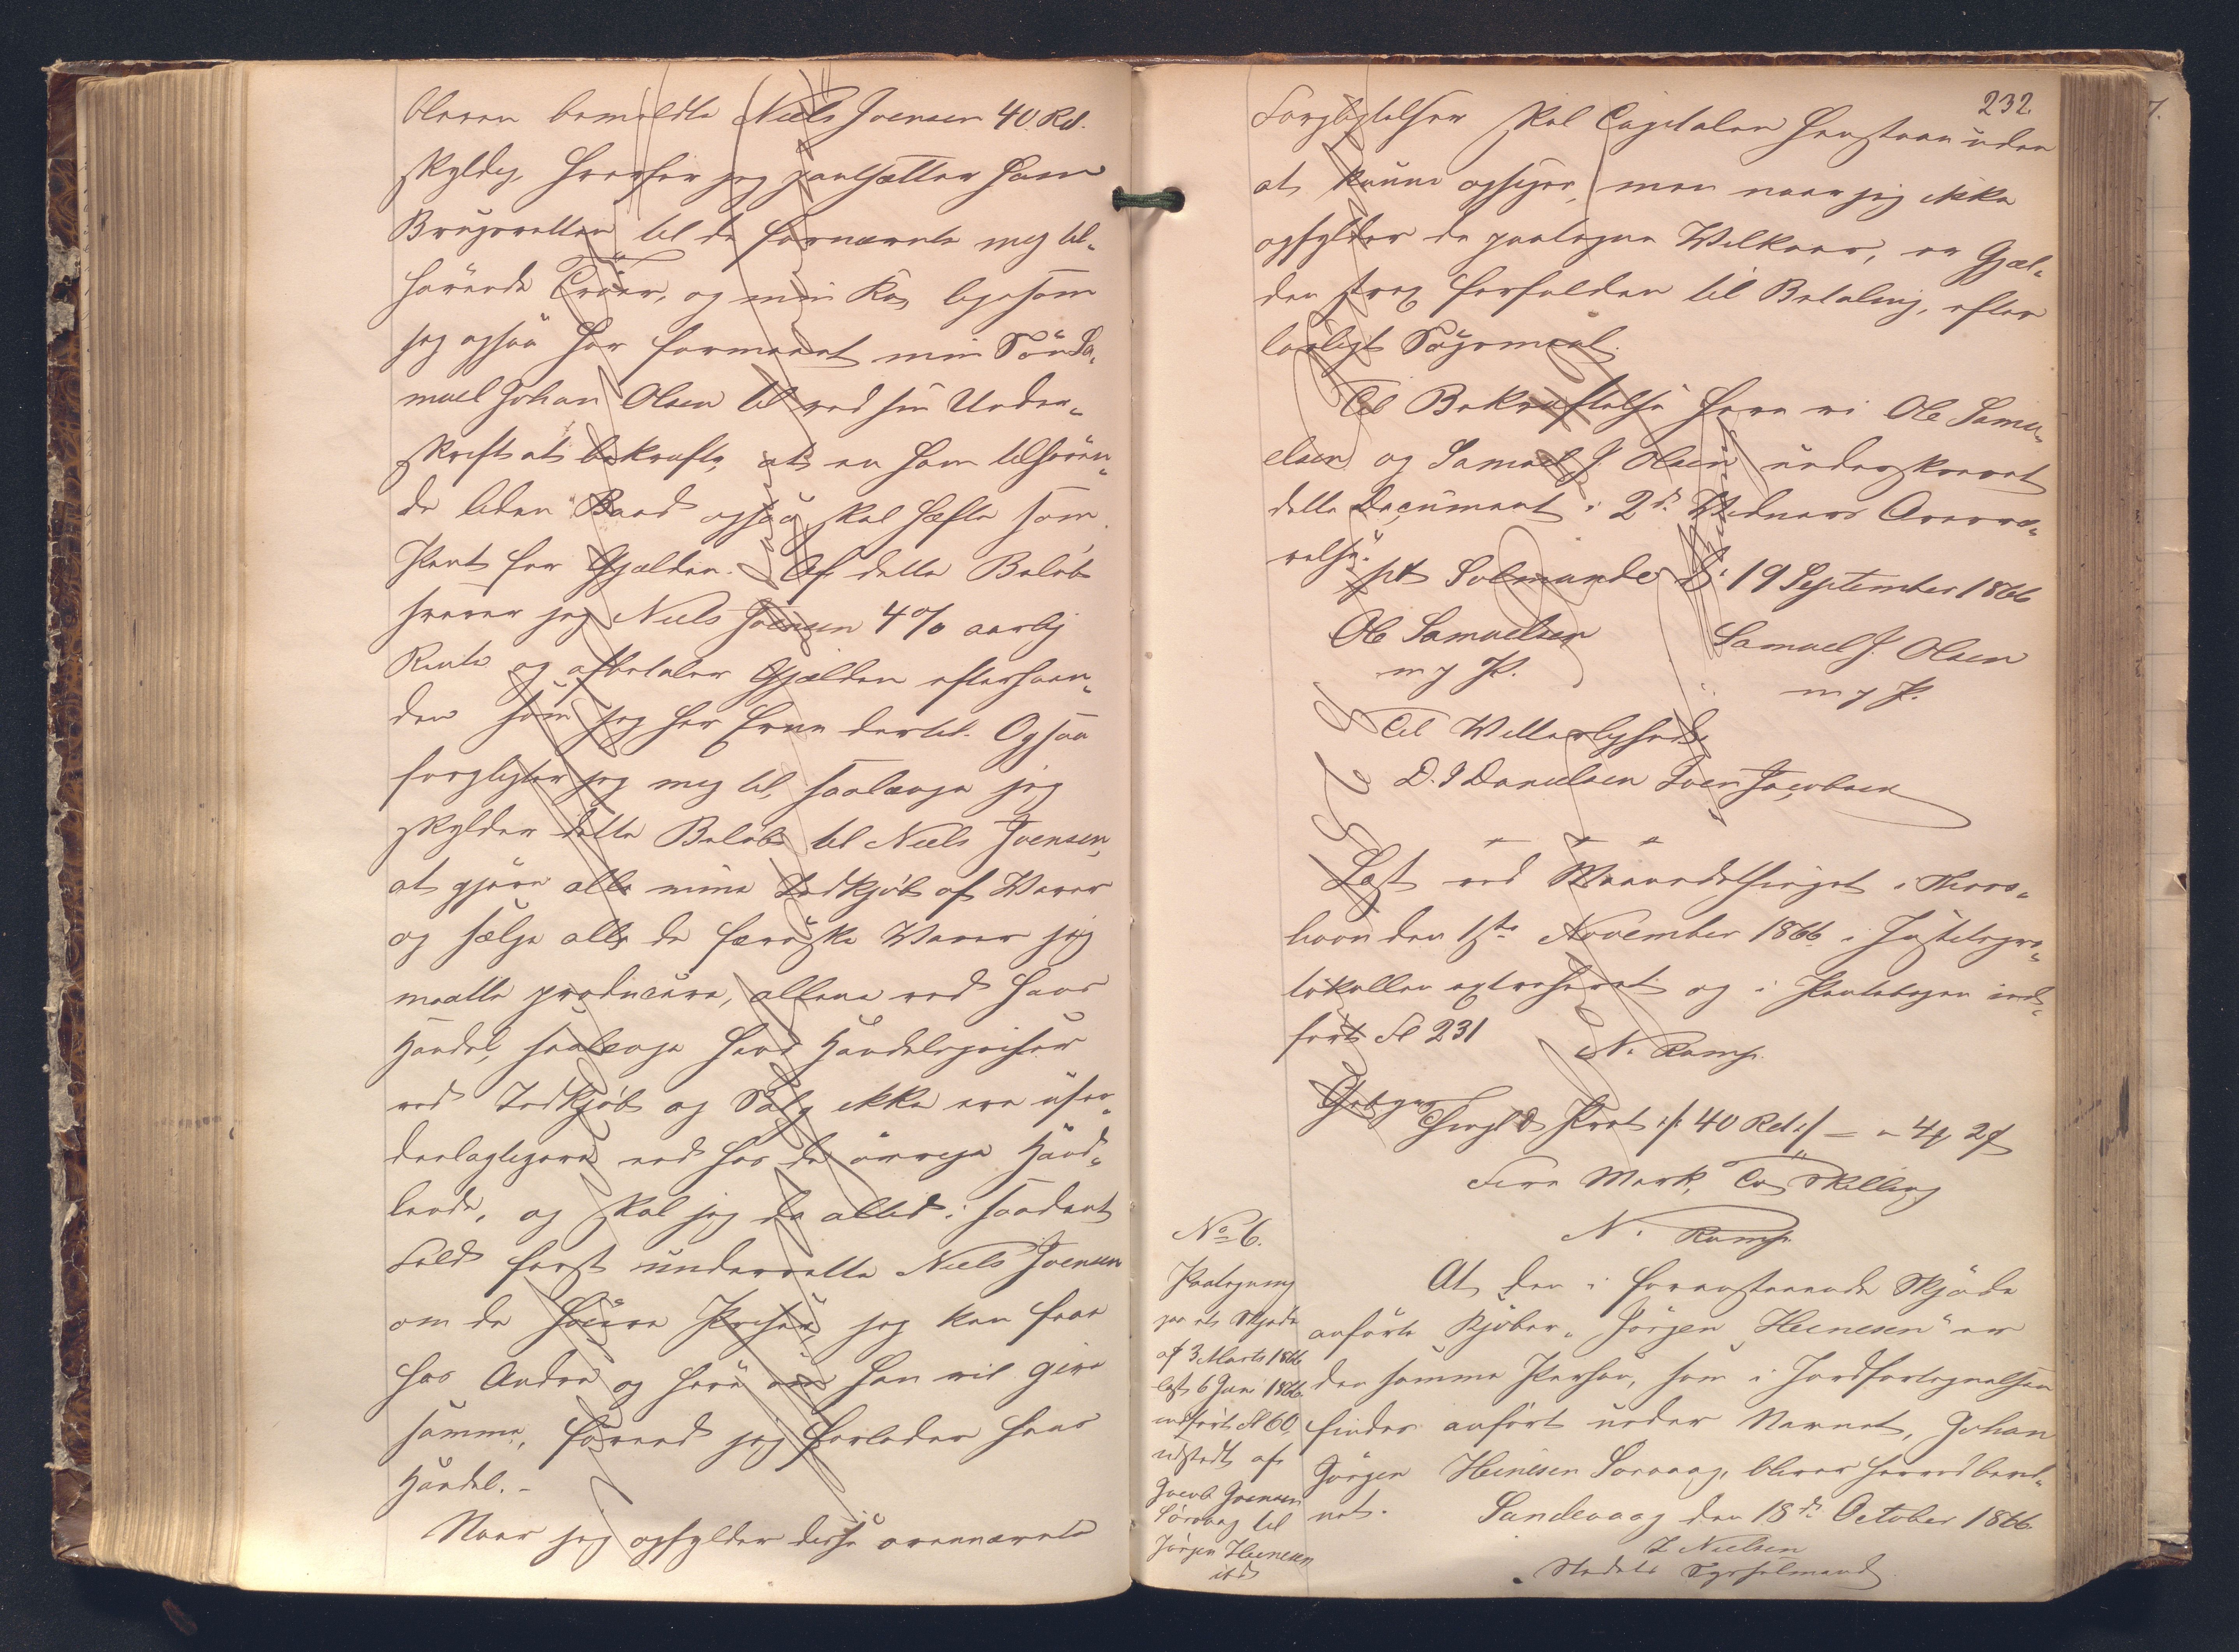 bleven bemeldte Niels Joensen 40 Rd.
skyldig, hvorfor jeg pantsætter ham
Brugsretten til de fornævnte mig til-
hørende Trøer, og min Ko, ligesom
jeg ogsaa har formaaet min Søn Sa-
muel Johan Olsen til ved sin Under-
skrift at bekræfte, at en ham tilhøren-
de liden Baad ogsaa skal hæfte som
Pant for Gjælden. Af dette Beløb
svarer jeg Niels Joensen 4% aarlig
Rente og afbetaler Gjælden efterhaan-
den som jeg har Evne dertil. Ogsaa
forpligter jeg mig til, saalænge jeg
skylder dette Beløb til Niels Joensen,
at gjøre alle mine Indkjøb af Varer
og sælge alle de færøske Varer jeg
maatte producere, allene ved hans
Handel, saalænge hans Handelspriser
ved Indkjøb og Salg ikke ere ufor-
deelagtigere end hos de øvrige Hand-
lende, og skal jeg da altid i saadant
Fald først underrette Niels Joensen
om de høiere Priser, jeg kan faae
hos Andre og høre om han vil give
samme, forend jeg forlader hans
Handel. -
Naar jeg opfylder disse ovennævnte
232.
Forpligtelser skal Capitalen henstaae uden
at kunne opsiges, men naar jeg ikke
opfylder de paalagne Vilkaar, er Gjæl-
den strax forfalden til Betaling, efter
lovligt Søgsmaal.
Til Bekræftelse have vi Ole Samu-
elsen og Samuel J. Olsen underskrevet
dette Document i 2de Vidners Overvæ-
relse.
pt Solmunde D. 19 September 1866
Ole Samuelsen Samuel J. Olsen
m p P. m p P.
Til Vitterlighed
D. J Danielsen Sven Jacobsen
Læst ved Maanedstinget i Thors-
havn den 1ste November 1866, i Justitspro-
tokollen extraheret og i Pantebogen ind-
ført Fol 231
N. Ramp.
Gebyr Thingl. & Prot :/: 40 Rd :/: = - 4 ℳ 2 ß
Fire Mark, To Skilling
N. Ramp.
No 6.
Paategning
paa et Skjøde
af 3 Marts 1866
læst 6 Juni 1866
indført Fol 60,
udstedt af
Jacob Joensen
Sørvaag til
Jörgen Heinesen
ibd
At den i foranstaaende Skjøde
anførte Kjøber „Jörgen Heinesen“ er
den samme Person, som i Jordfortegnelsen
findes anført under Navnet, Johan
Jörgen Heinesen Sorvaag, bliver herved bevid-
net. Sandevaag den 18de October 1866.
Z Nielsen
Stedets Sysselmand